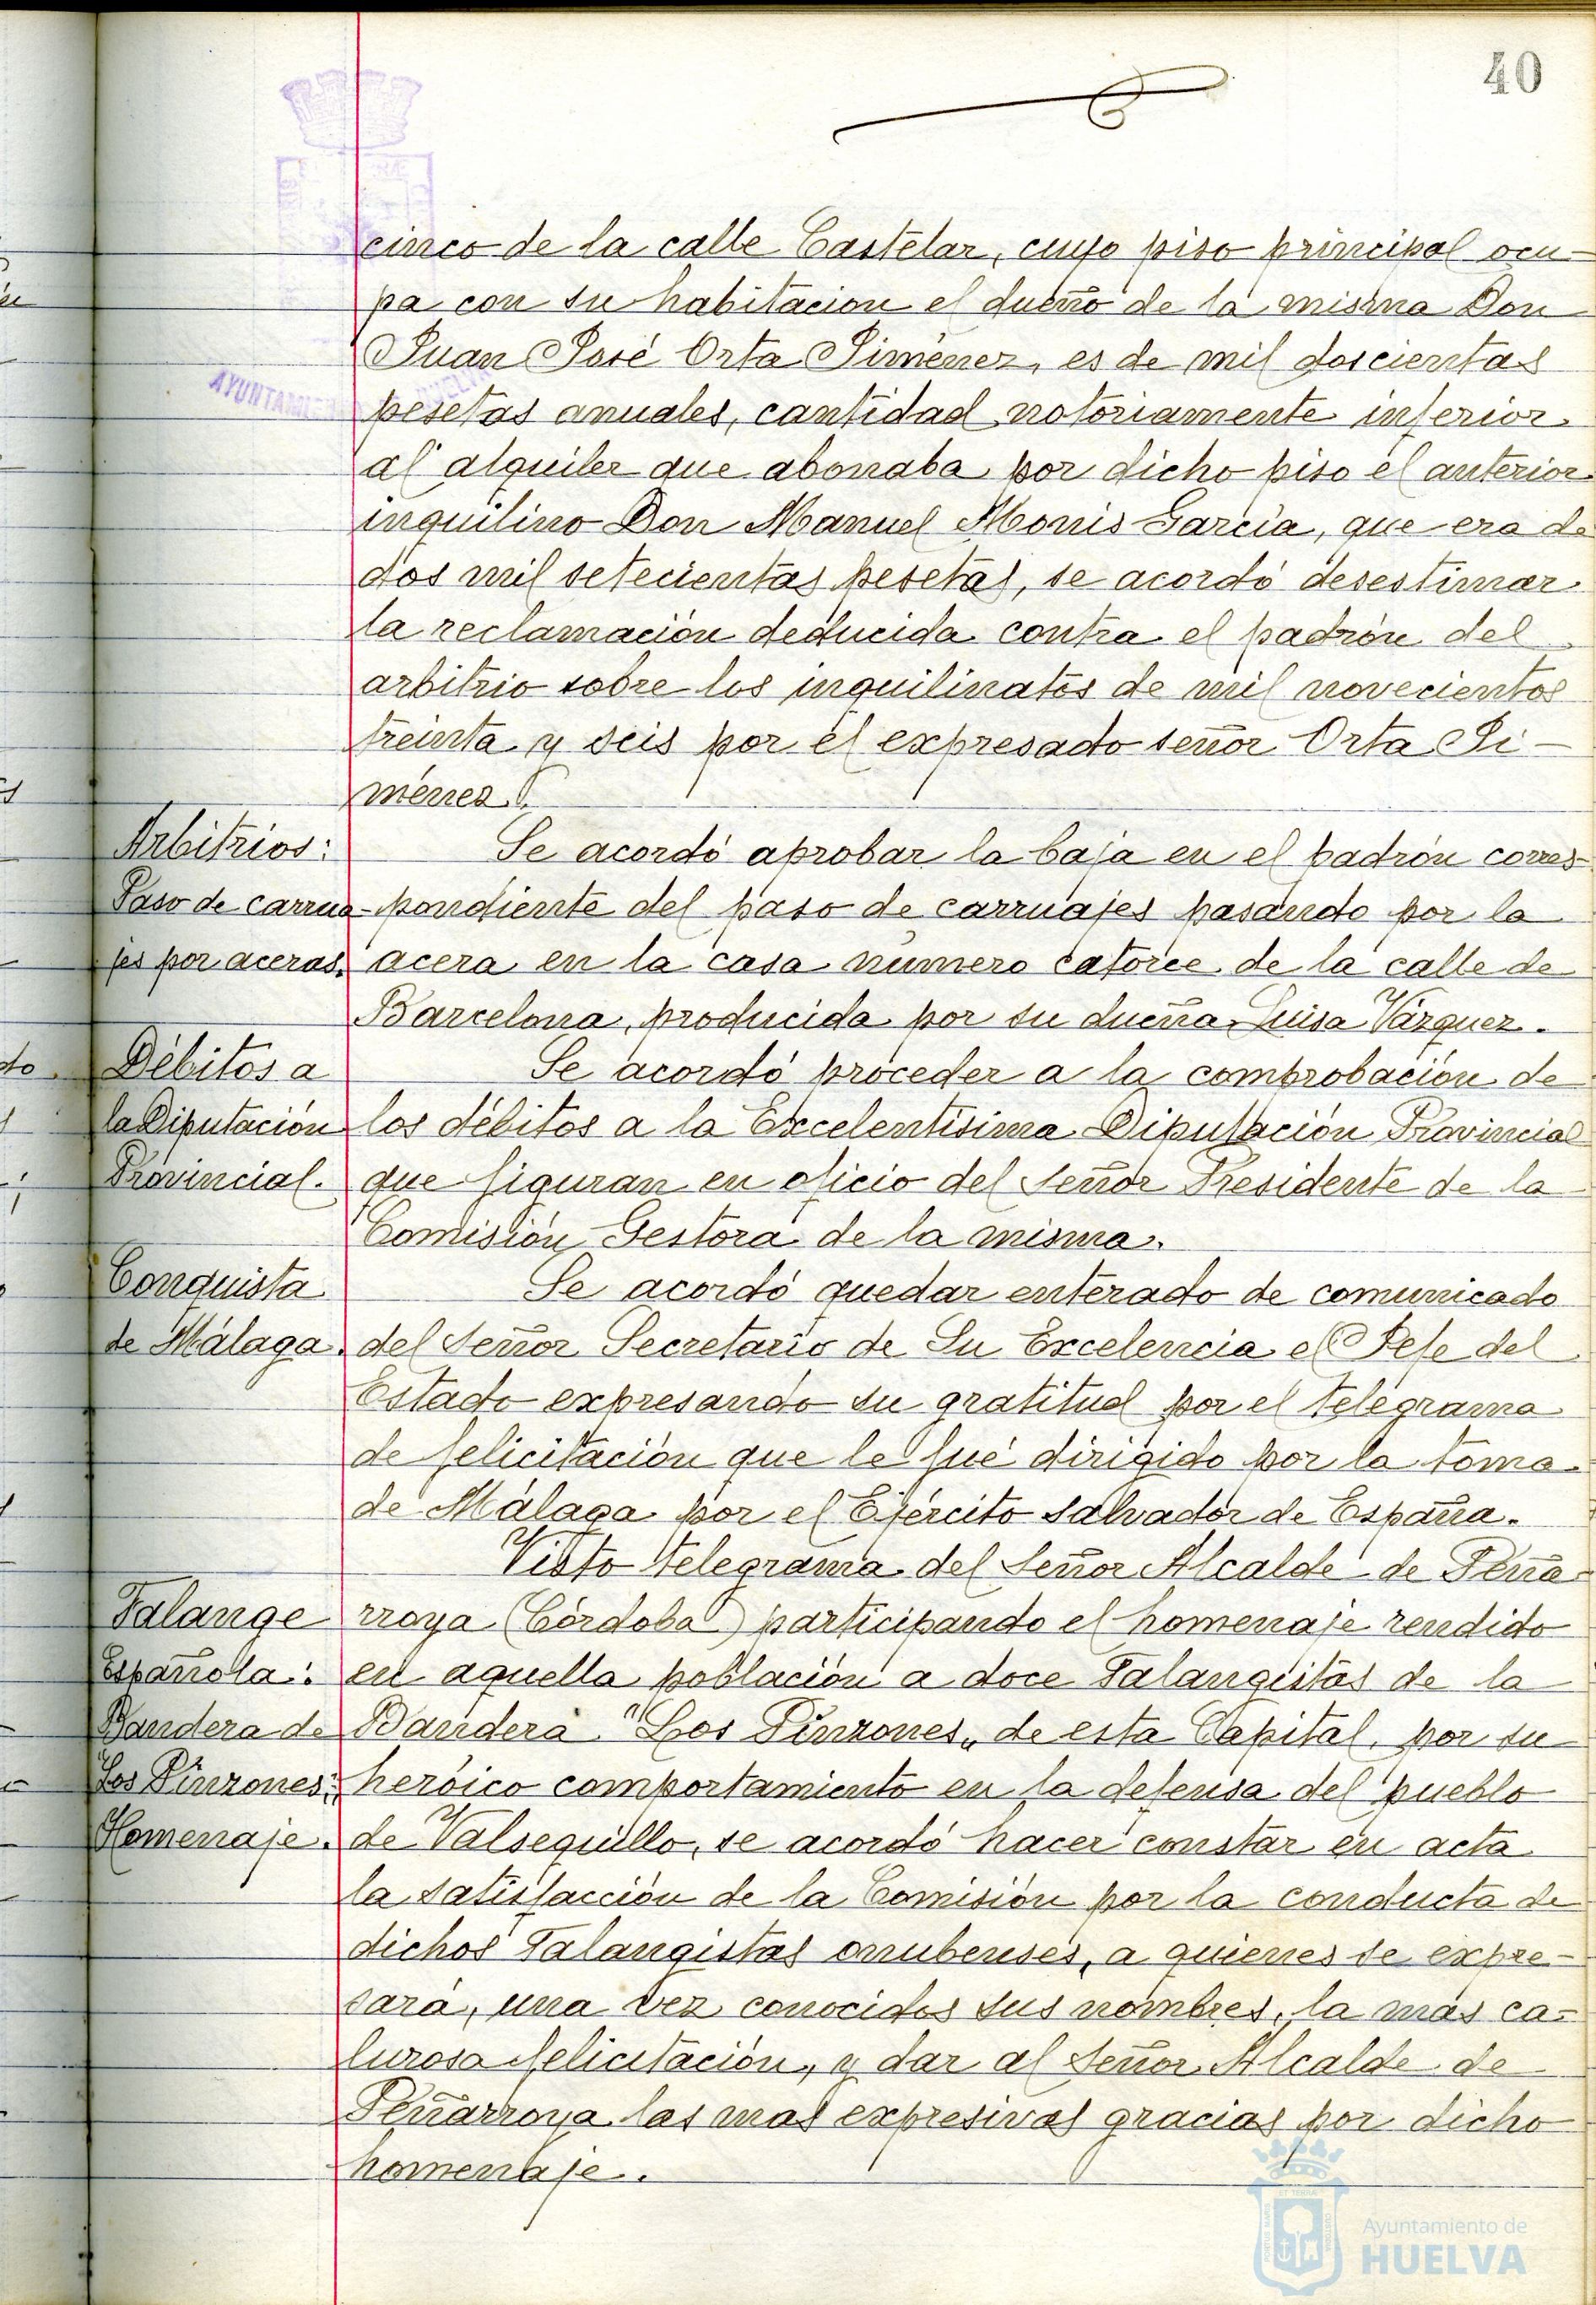 40
cinco de la calle Castelar, cuyo piso principal ocu-
pa con su habitacion el dueño de la misma Don
Juan José Orta Jiménez, es de mil doscientas
AYUNTAMIE
pesetas anuales, cantidad notoriamente inferior
al alquiler que abonaba por dicho piso el anterior
inquilino Don Manuel Monis García, que era de
dos mil setecientas pesetas, se acordó desestimar
la reclamación deducida contra el padrón del
arbitrio sobre los inquilinatos de mil novecientos
treinta y seis por el expresado señor Orta Ji-
ménez.
Arbitrios:
Paso de carrua-
jes por aceras.
Se acordó aprobar la baja en el padrón corres-
pondiente del paso de carruajes pasando por la
acera en la casa número catorce de la calle de
Barcelona, producida por su dueña Luisa Vázquez.
Débitos a
la Diputación
Provincial.
Se acordó proceder a la comprobación de
los débitos a la Excelentísima Diputación Provincial
que figuran en oficio del Señor Presidente de la
Comisión Gestora de la misma.
Conquista
de Málaga.
Se acordó quedar enterado de comunicado
del Señor Secretario de Su Excelencia el Jefe del
Estado expresando su gratitud por el telégrama
de felicitación que le fué dirigido por la toma
de Málaga por el Ejército salvador de España.
Falange
Española:
Bandera de
Los Pinzones:
Homenaje.
Visto telegrama del Señor Alcalde de Peña-
rroya (Córdoba) participando el homenaje rendido
en aquella población a doce Falangistas de la
Bandera "Los Pinzones„ de esta Capital, por su
heróico comportamiento en la defensa del pueblo
de Valsequillo, se acordó hacer constar en acta
la satisfacción de la Comisión por la conducta de
dichos Falangistas onubenses, a quienes se expre-
sará, una vez conocidos sus nombres, la más ca-
lurosa felicitación, y dar al Señor Alcalde de
Peñarroya las mas expresivas gracias por dicho
homenaje.
Ayuntamiento de
HUELVA